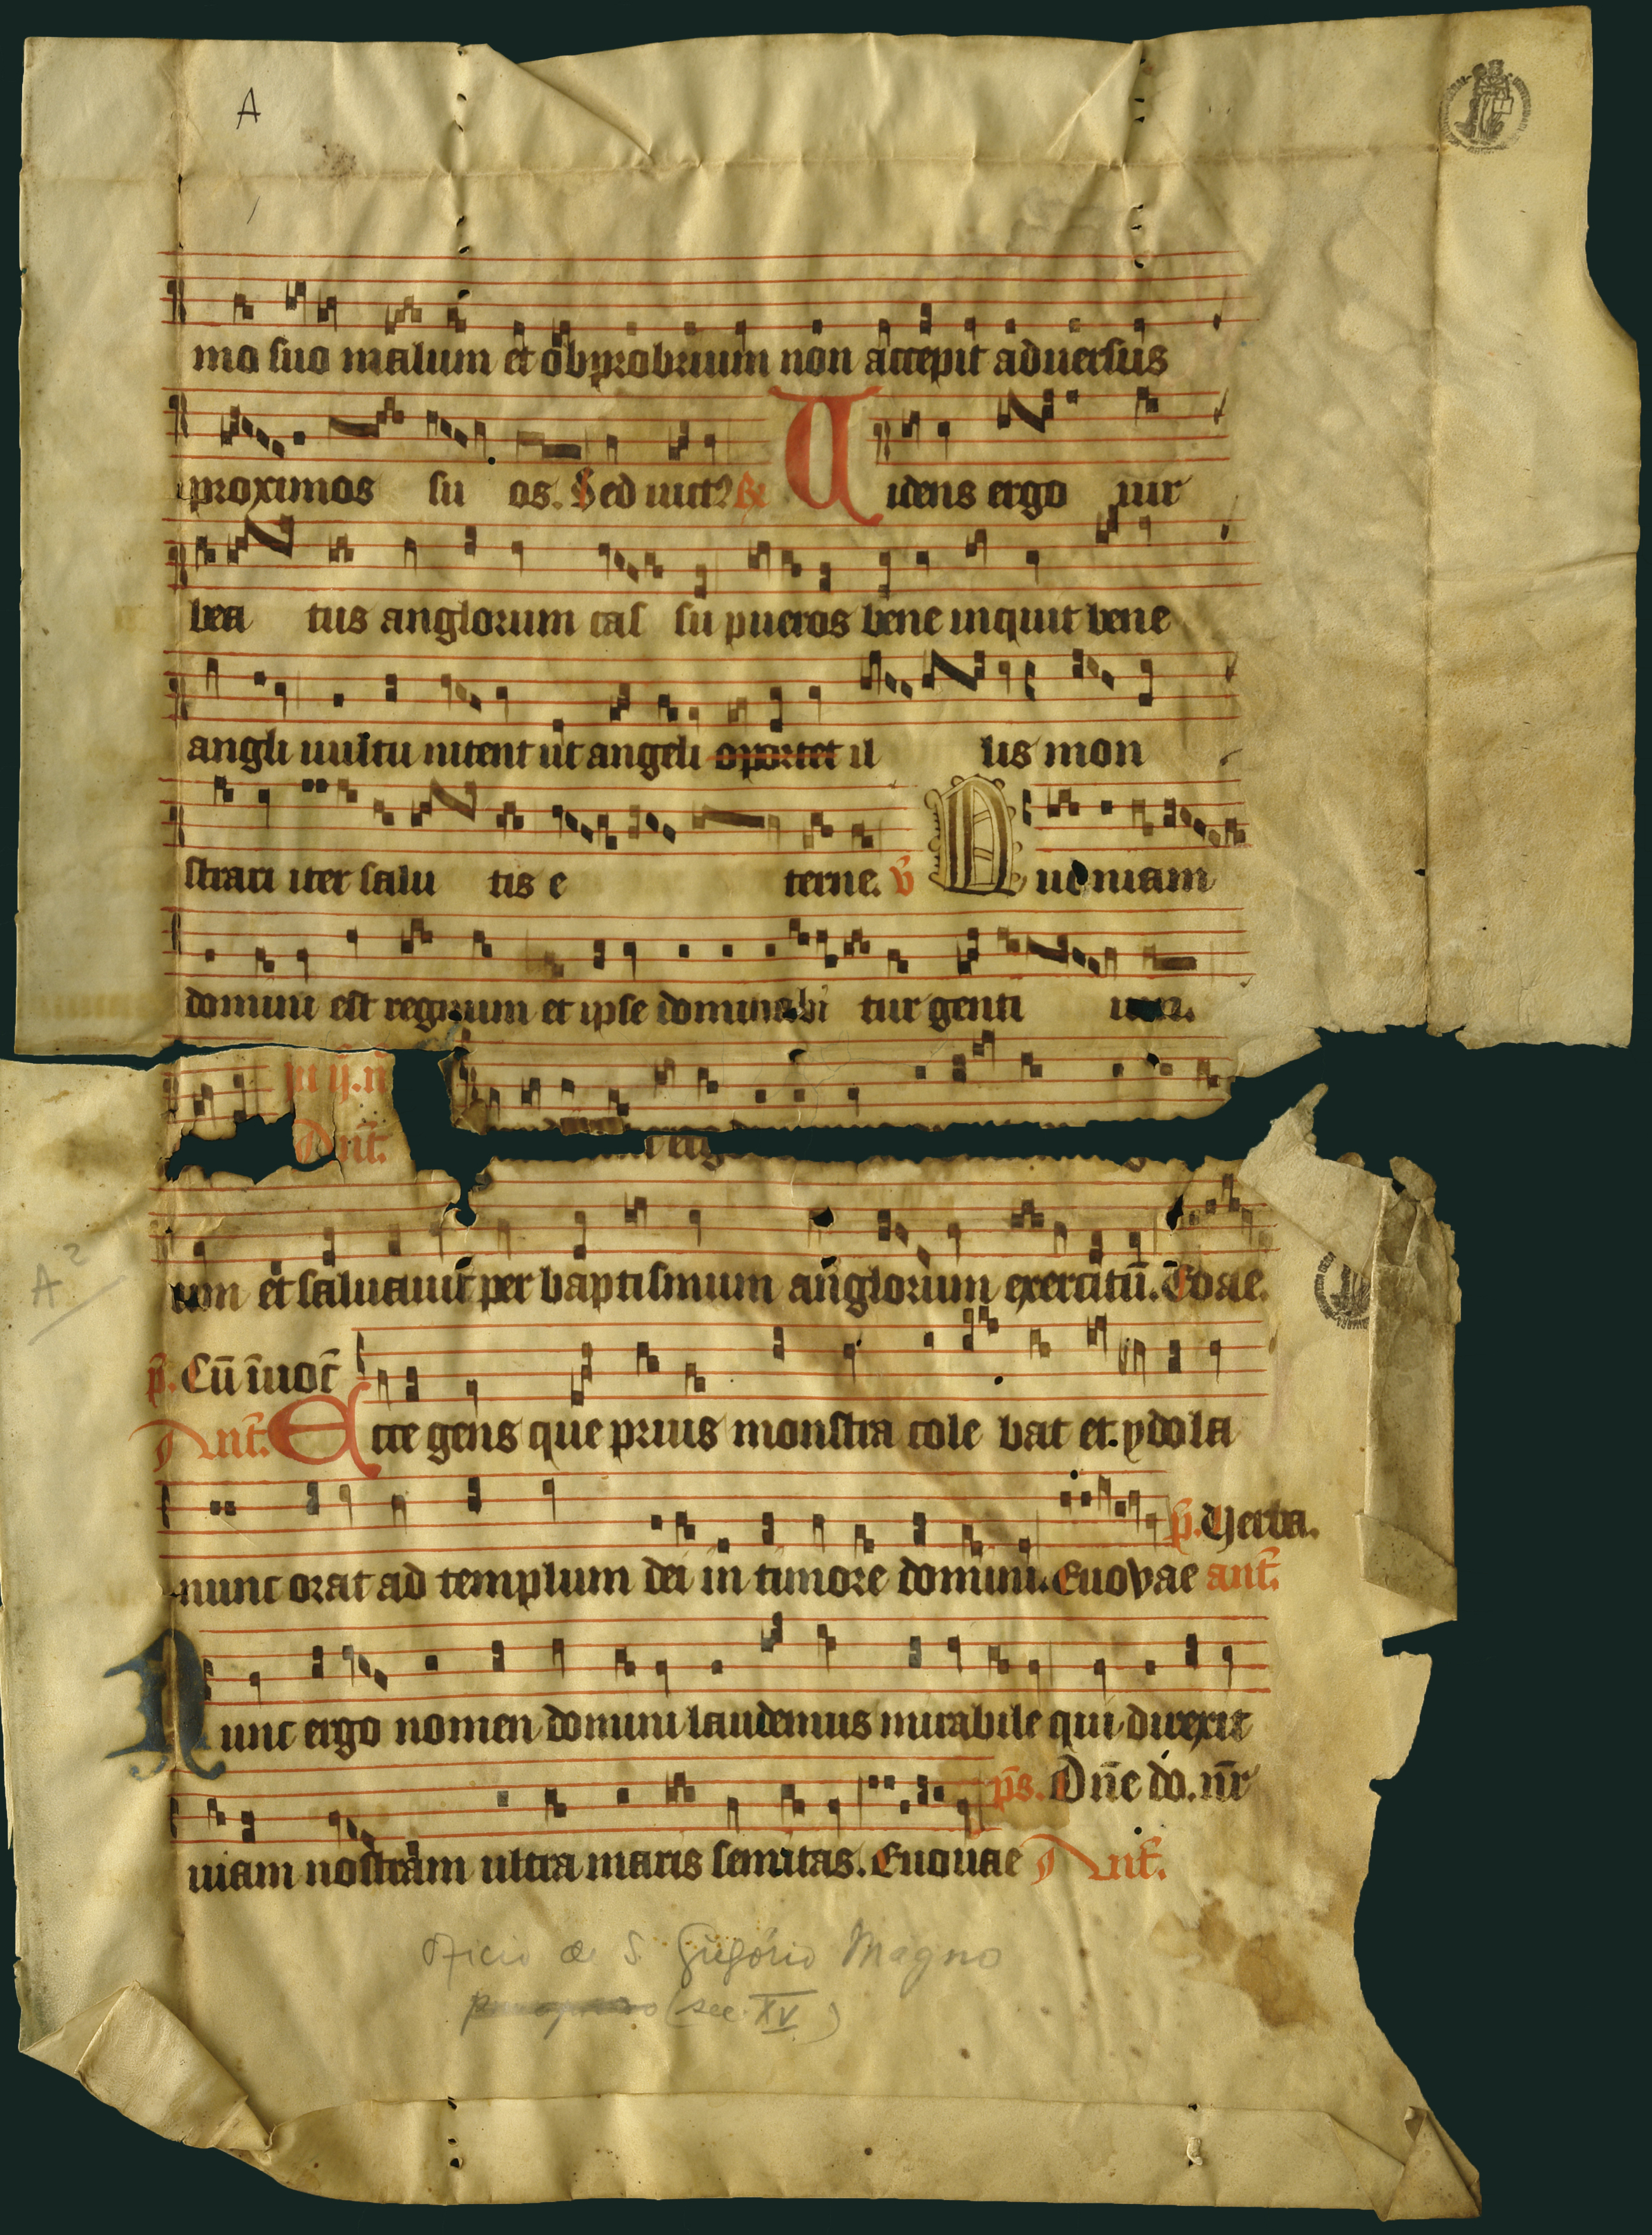 A
mo suo malum et obprobrium non accepit aduersus
proximos su os. Sed iuct? R Uidens ergo uir
bea tus anglorum cas su pueros bene inquit bene
angli uultu nitent ut angeli oportet il lis mon
strari iter salu tis e terne. v̄ Quoniam
domini est regnum et ipse dominabi tur genti um.
Ant̄.
et saluauit per baptismum anglorum exercitū. Eoae.
A²
p̄. Cū īuoc̄
Ant̄. Ecce gens que prius monstra cole bat et ydola
p̄. Uerba.
nunc orat ad templum dei in timore domini. Euovae ant̄.
Nunc ergo nomen domini laudemus mirabile qui direxit
p̄s. Dn̄e do. nr̄
uiam nostram ultra maris semitas. Euouae Ant̄.
Oficio de S. Gregório Magno
(sec. XV)